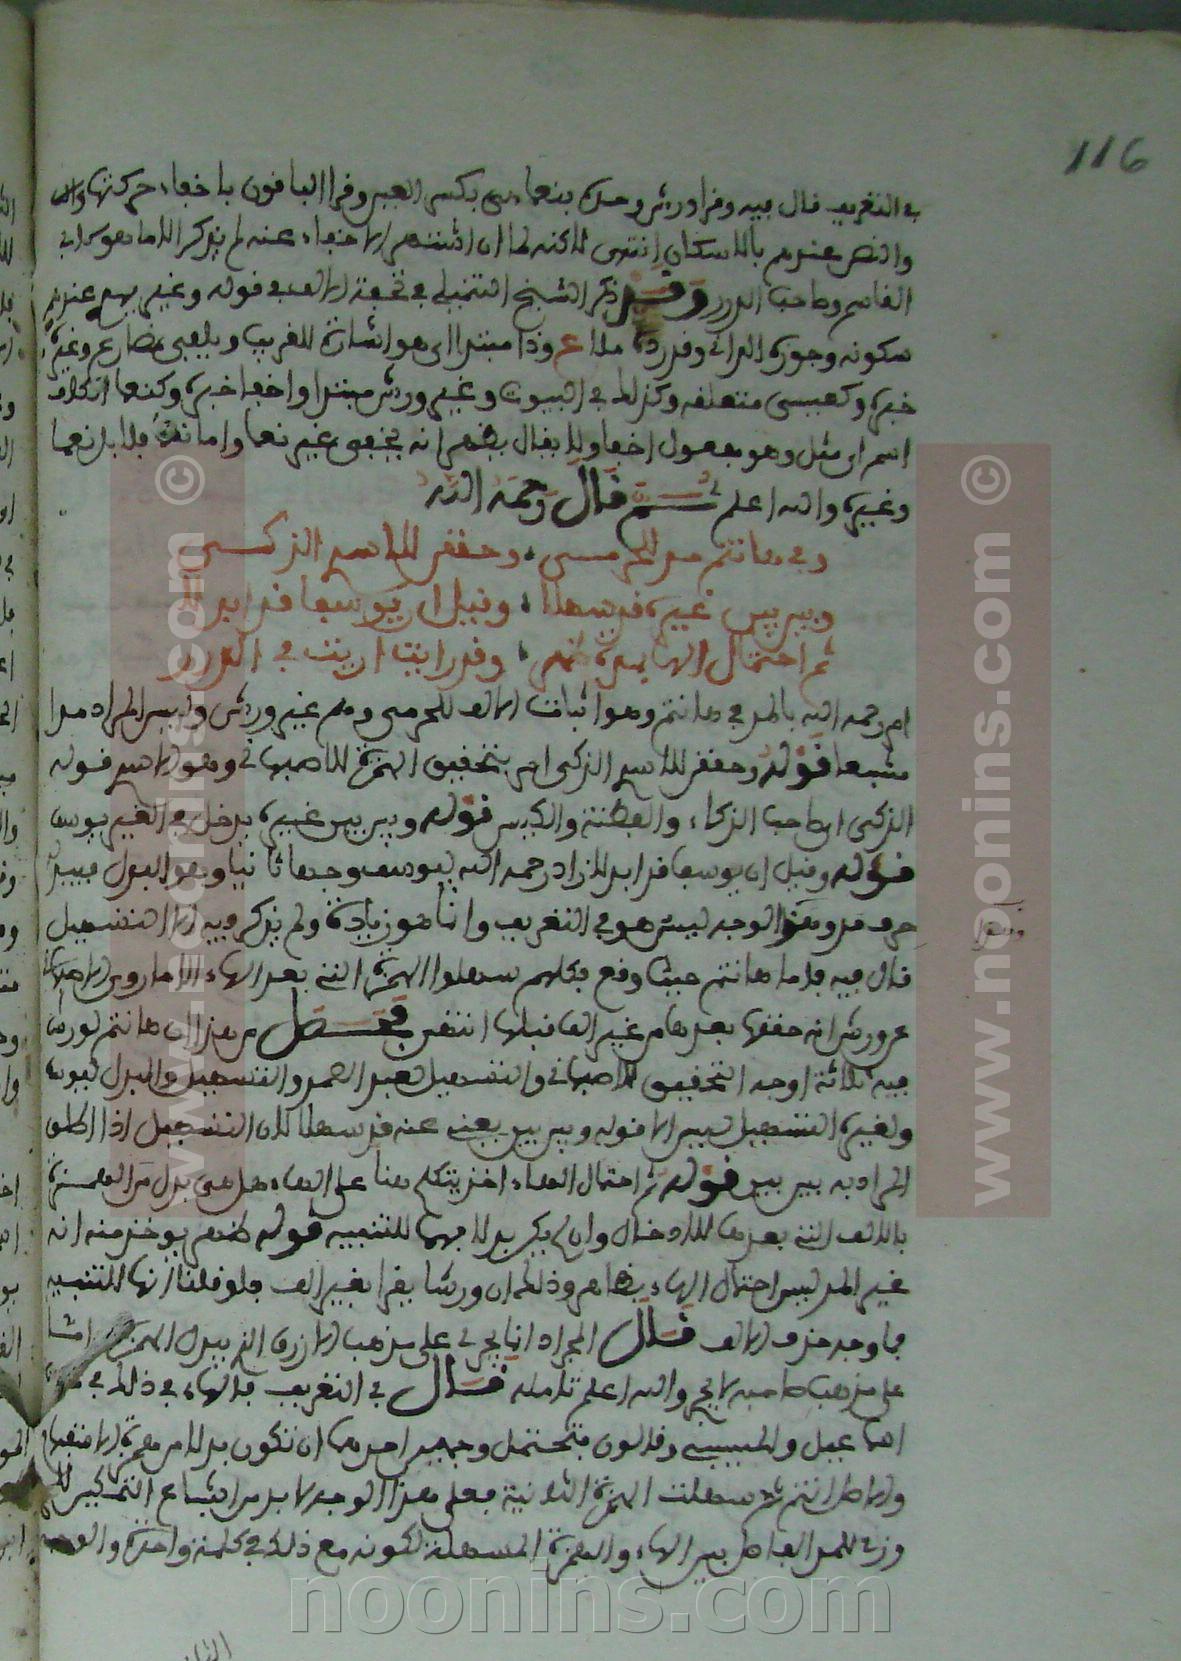 116
في التعريف قال فيه وقرأ ورش وحده بنعما بكسر العين وقرأ الباقون بإخفاء حركتها
والنص عندهم بالإسكان انتهى لاكنه لما ان اشتهر الاخفاء عنه لم يذكر الاما هو
القاسم وصاحب الدرر وقد ذكر الشيخ في تحفة الالف في قوله وغيرهم عندهم
سكونه وجوزه الداني وقد رده ملا ع وذا مبتدا اي هو اشارة للقريب ويلفى مضارع وغيره
خبره وكعيسى متعلقه وكذلك في البيوت وغير ورش مبتدا واخفا خبره وكنعما
اسم اي مثل وهو مفعول اخفا ولا يقال يظهر انه يخفي غير نعما واما فلا بل نعما
وغيره والله اعلم ثم قال رحمه الله
وفي هانتم مد للحرمي وحقق للاسدي الذكي
وبين بين غيره قد سهلا وقيل ان يوسفا قد ابدلا
ثم احتمال الهاء فيه ظهر وقد رايت اريت في الدرر
امر رحمه الله بالمد في هانتم وهو اثبات الالف للحرمي وهم غير ورش وليس المراد مدا
مشبعا قوله وحقق للاسدي الذكي امر بتحقيق الهمزة للاصبهاني وهو الاسدي قوله
الذكي اي صاحب الذكاء والفطنة والكيس قوله وبين بين غيره يدخل في الغير يوسف
قوله وقيل ان يوسفا قد ابدلا زاد رحمه الله ليوسف وجها ثانيا وهو البدل فيبدل
حرف مد وهذا الوجه ليس هو في التعريف وانما هو زيادة ولم يذكر فيه الا التسهيل
قال فيه فاما هانتم حيث وقع فكلهم سهلوا الهمزة التي بعد الهاء الا ما روى الاصبهاني
عن ورش انه حققها بعدها من غير الف قبلها انتهى فحصل من هذا ان هانتم لورش
فيه ثلاثة اوجه التحقيق للاصبهاني والتسهيل لعبد الصمد والتسهيل والبدل ليوسف
ولغيره التسهيل ليس الا قوله وبين بين يغني عنه قد سهلا لان التسهيل اذا اطلق
المراد به بين بين قوله ثم احتمال الهاء اخذ يتكلم هنا على الهاء هل هي بدل من الهمزة
بالالف التي بعدها للادخال وان لم يكن بدلا فهما للتنبيه قوله ظهر يوخذ منه انه
غير المد ليس احتمال الهاء بظاهر وذلك ان ورشا يقرا بغير الف فلو قلنا انها للتنبيه
فما وجه حذف الالف قال المراد انما يجري على مذهب الازرق الذي يبدل الهمزة
على مذهب صاحبه لا يجري والله اعلم تامله قال في التعريف فالهاء في ذلك في
اسماعيل والمسيبي وقالون تحتمل وجهين احدهما ان تكون بدلا من همزة الاستفهام
والاصل اانتم ثم سهلت الهمزة الثانية فعلى هذا الوجه لا بد من اشباع التمكين
وزيد للمد الفاصل بين الهاء والهمزة المسهلة لكونه مع ذلك في كلمة واحدة والوجه